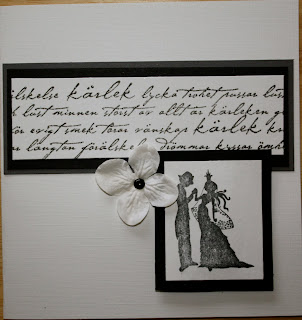 älskelse kärlek lycka trohet pussar
lust minnen störst av allt är kärleken
för evigt smek tårar vänskap kärlek
längtan förälskelse drömmar kyssar